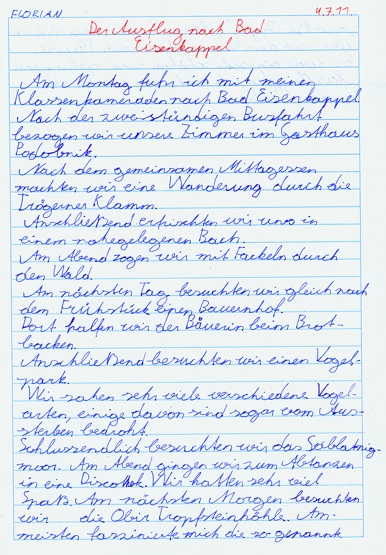 FLORIAN 4.7.11.
Der Ausflug nach Bad
Eisenkappel
Am Montag fuhr ich mit meinen
Klassenkameraden nach Bad Eisenkappel.
Nach der zweistündigen Busfahrt
bezogen wir unsere Zimmer im Gasthaus
Podobnik.
Nach dem gemeinsamen Mittagessen
machten wir eine Wanderung durch die
Trögerner Klamm.
Anschließend erfrischten wir uns in
einem nahegelegenen Bach.
Am Abend zogen wir mit Fackeln durch
den Wald.
Am nächsten Tag besuchten wir gleich nach
dem Frühstück einen Bauernhof.
Dort halfen wir der Bäuerin beim Brot-
backen.
Anschließend besuchten wir einen Vogel-
park.
Wir sahen sehr viele verschiedene Vogel-
arten, einige davon sind sogar vom Aus-
sterben bedroht.
Schlussendlich besuchten wir das
moor. Am Abend gingen wir zum Abtanzen
in eine Discothek. Wir hatten sehr viel
Spaß. Am nächsten Morgen besuchten
wir die Obir Tropfsteinhöhle. Am
meisten faszinierte mich die so genannt